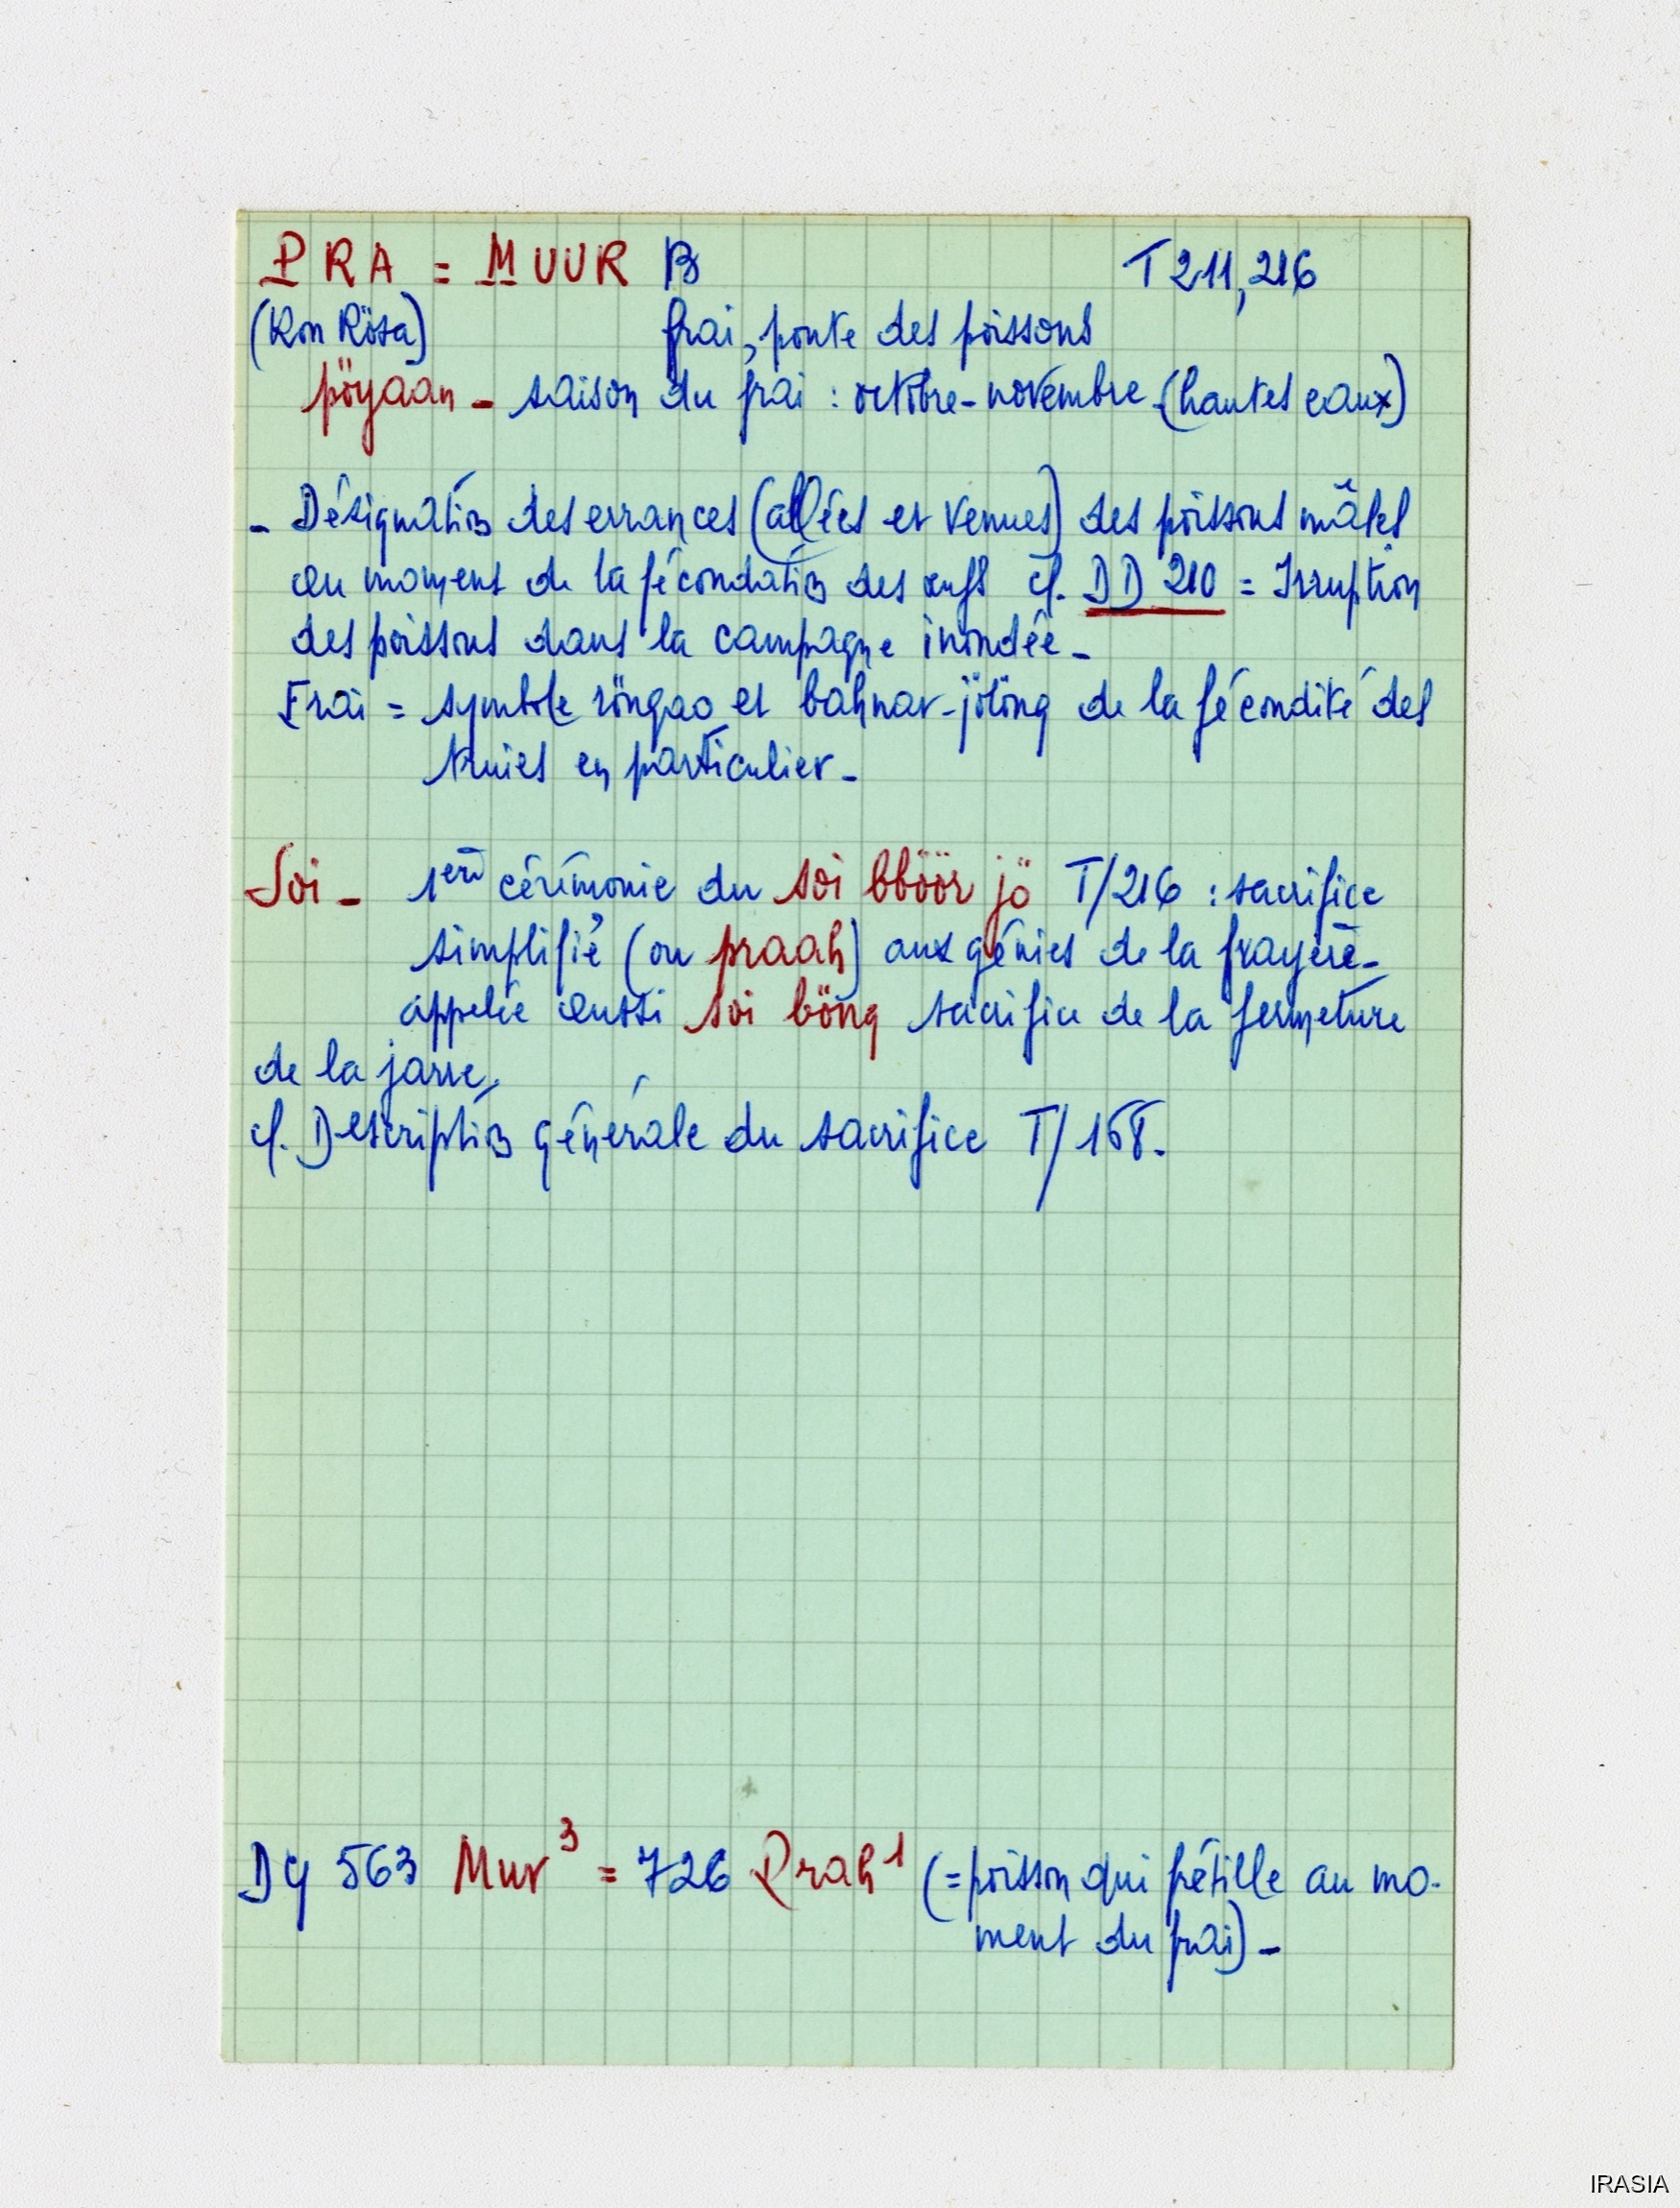 PRA = MUUR B T 211, 216
(Kon Rösa) frai, ponte des poissons
pöyaan - saison du frai : octobre-novembre (hautes eaux)
- Désignation des errances (allées et venues) des poissons mâles
au moment de la fécondation des œufs cf. DD 210 = Irruption
des poissons dans la campagne inondée -
Frai = symbole röngao et bahnar-jölöng de la fécondité des
truies en particulier -
Soi - 1ère cérémonie du soi bböör jö T/216 : sacrifice
simplifié (ou praah) aux génies de la frayère -
appelée aussi soi böng sacrifice de la fermeture
de la jarre.
cf. Description générale du sacrifice T/168.
Dy 563 Mur³ = 726 Prah¹ (= poisson qui frétille au mo-
ment du frai) -
IRASIA